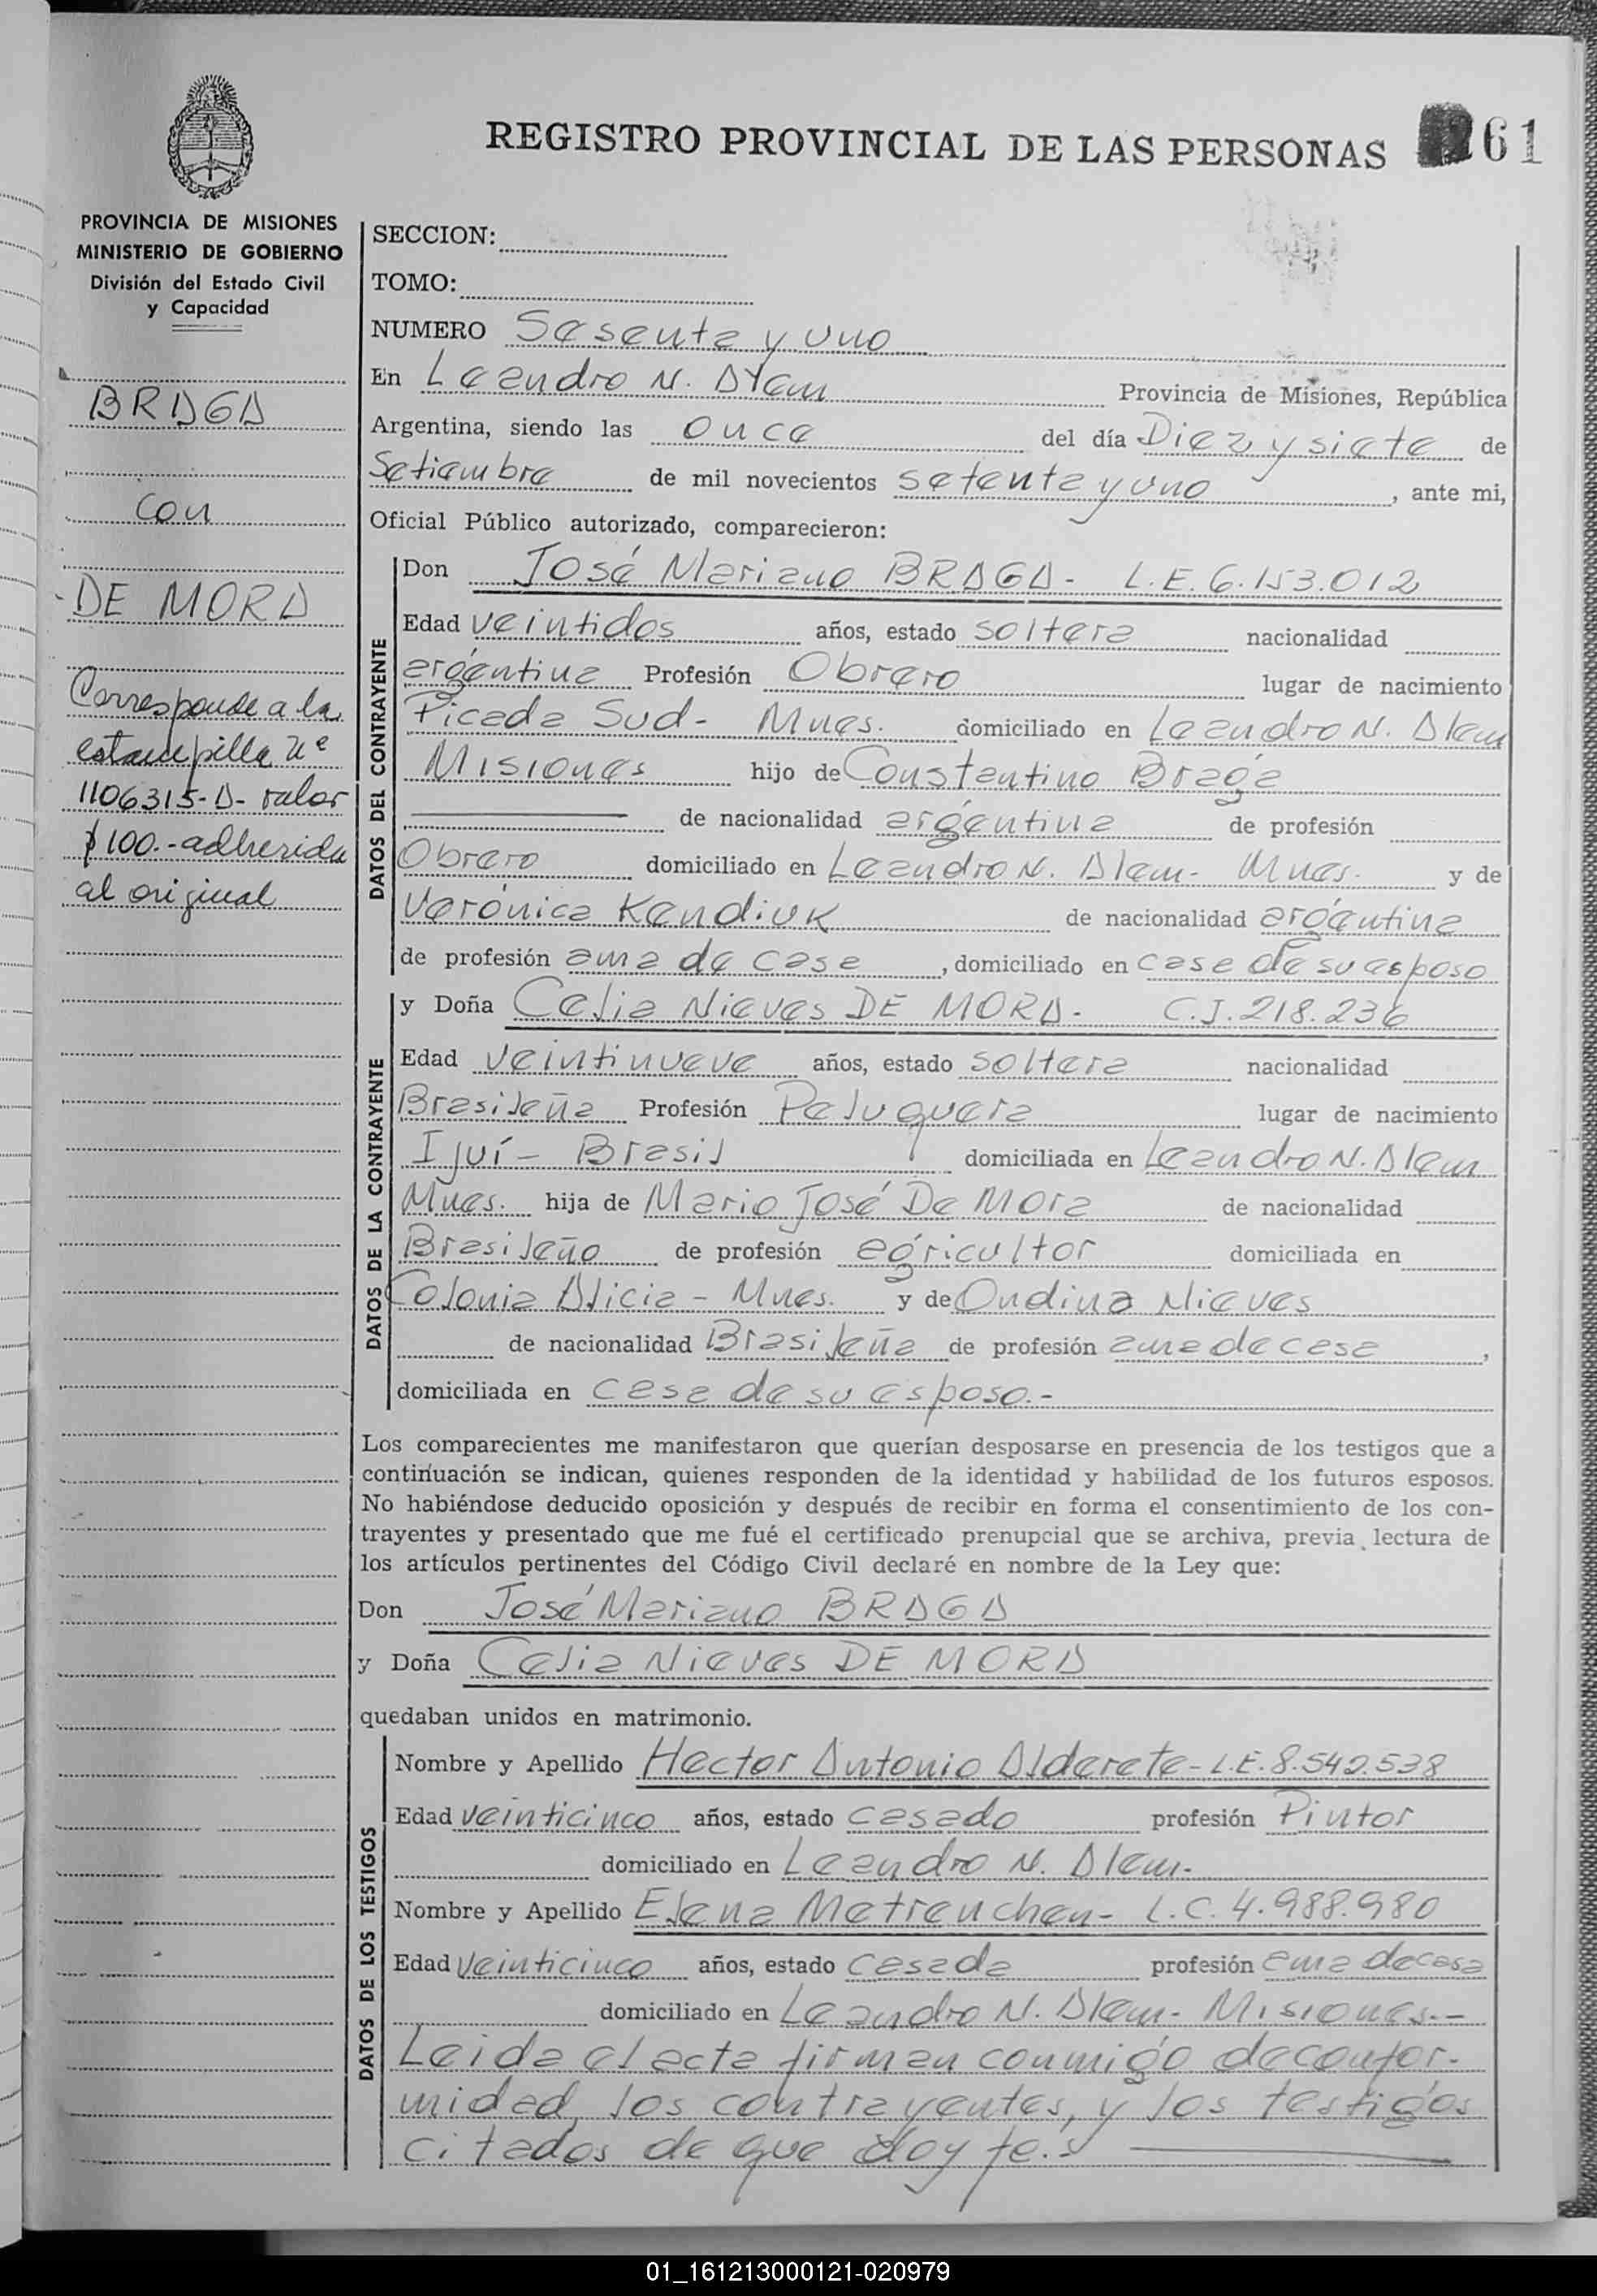 REGISTRO PROVINCIAL DE LAS PERSONAS 61
PROVINCIA DE MISIONES
MINISTERIO DE GOBIERNO
División del Estado Civil
y Capacidad
BRAGA
con
DE MORA
Corresponde a la
estampilla nº
1106315-A- valor
$100.- adherida
al original
SECCION:
TOMO:
NUMERO Sesenta y uno
En Leandro N. Alem Provincia de Misiones, República
Argentina, siendo las once del día Diez y siete de
Setiembre de mil novecientos setenta y uno, ante mi,
Oficial Público autorizado, comparecieron:
DATOS DEL CONTRAYENTE
Don José Mariano BRAGA- L.E. 6.153.012
Edad veintidos años, estado soltera nacionalidad
argentina Profesión Obrero lugar de nacimiento
Picada Sud- Mnes. domiciliado en Leandro N. Alem
Misiones hijo de Constantino Braga
de nacionalidad argentina de profesión
Obrero domiciliado en Leandro N. Alem- Mnes. y de
Verónica Kendiuk de nacionalidad argentina
de profesión ama de casa, domiciliado en casa de su esposo
DATOS DE LA CONTRAYENTE
y Doña Celia Nieves DE MORA- C.I. 218.236
Edad veintinueve años, estado soltera nacionalidad
Brasileña Profesión Peluquera lugar de nacimiento
Ijuí- Brasil domiciliada en Leandro N. Alem
Mnes. hija de Mario José De Mora de nacionalidad
Brasileño de profesión agricultor domiciliada en
Colonia Alicia- Mnes. y de Ondina Nieves
de nacionalidad Brasileña de profesión ama de casa,
domiciliada en casa de su esposo.-
Los comparecientes me manifestaron que querían desposarse en presencia de los testigos que a
continuación se indican, quienes responden de la identidad y habilidad de los futuros esposos.
No habiéndose deducido oposición y después de recibir en forma el consentimiento de los con-
trayentes y presentado que me fué el certificado prenupcial que se archiva, previa lectura de
los artículos pertinentes del Código Civil declaré en nombre de la Ley que:
Don José Mariano BRAGA
y Doña Celia Nieves DE MORA
quedaban unidos en matrimonio.
DATOS DE LOS TESTIGOS
Nombre y Apellido Hector Antonio Alderete- L.E. 8.542.538
Edad veinticinco años, estado casado profesión Pintor
domiciliado en Leandro N. Alem.
Nombre y Apellido Elena Metrenchen- L.C. 4.988.980
Edad veinticinco años, estado casada profesión ama de casa
domiciliado en Leandro N. Alem- Misiones.-
Leida el acta firman conmigo de confor-
midad, los contrayentes, y los testigos
citados de que doy fe.
01_161213000121-020979